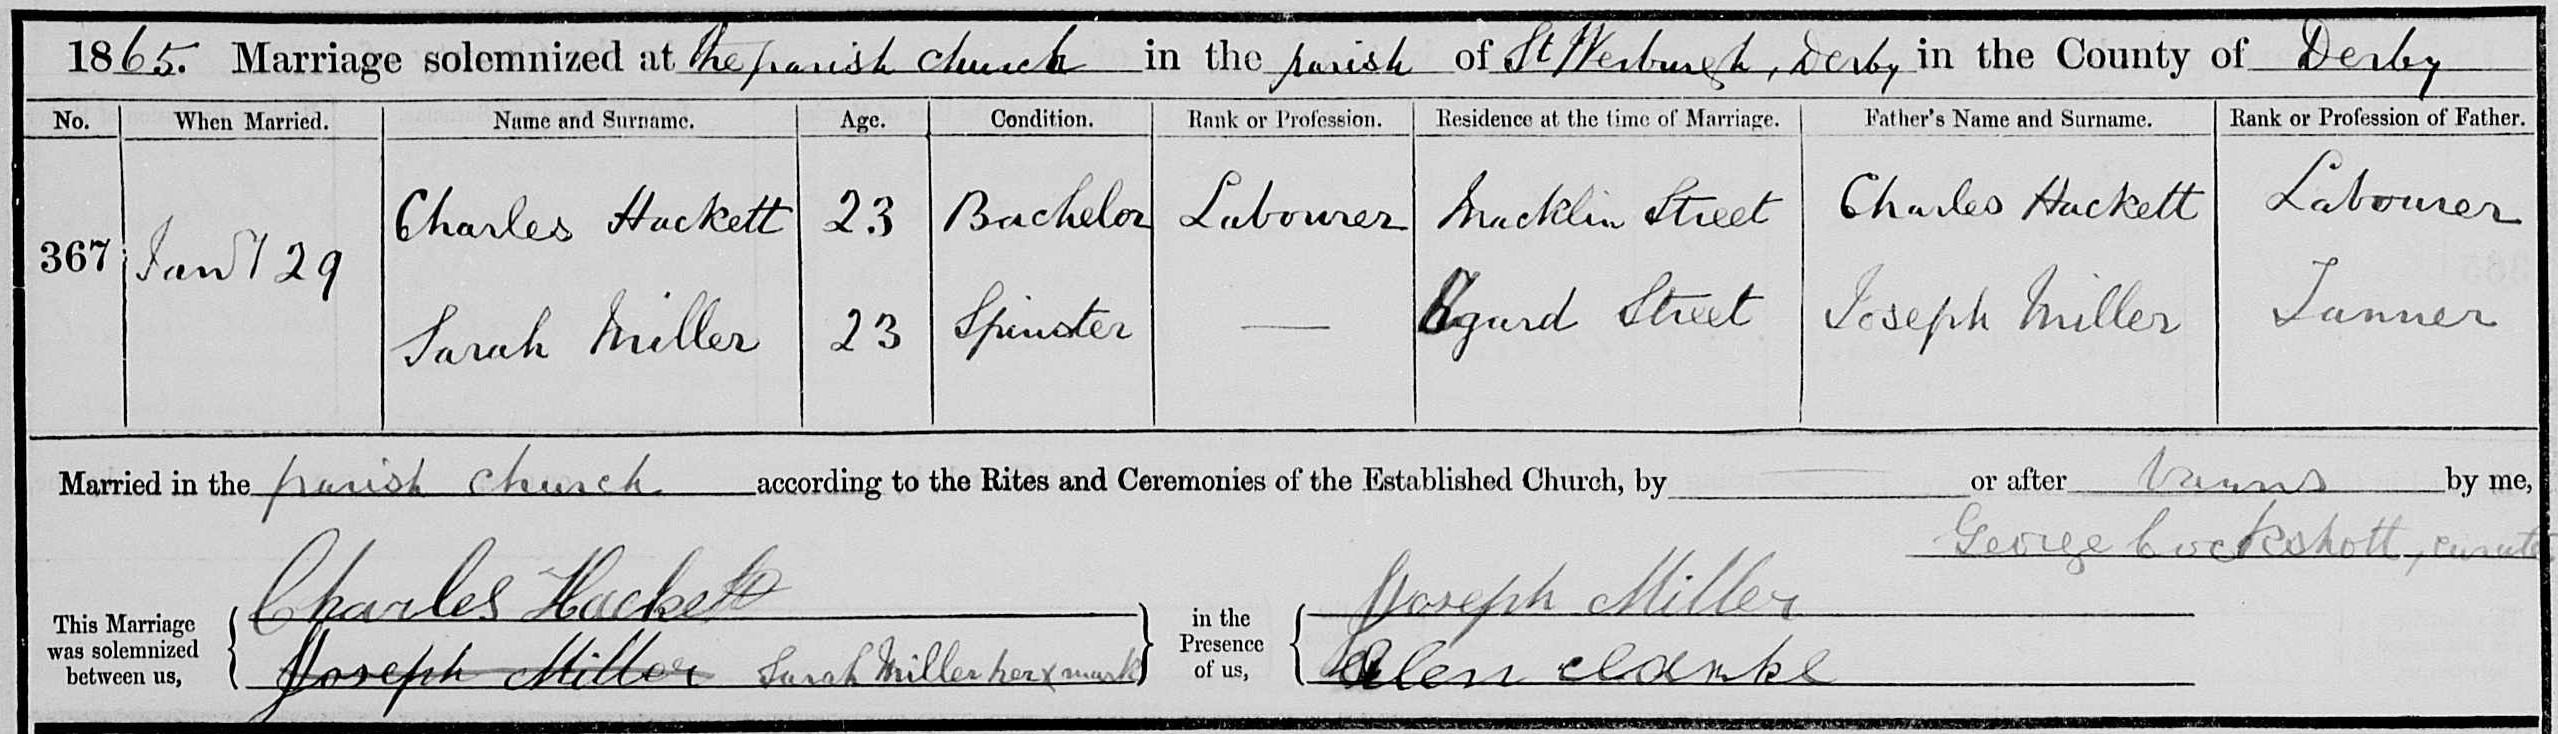 1865. Marriage solemnized at the parish church in the parish of St Werburgh, Derby in the County of Derby
No. When Married. Name and Surname. Age. Condition. Rank or Profession. Residence at the time of Marriage. Father's Name and Surname. Rank or Profession of Father.
Charles Hackett 23 Bachelor Labourer Macklin Street Charles Hackett Labourer
367 Jany 29
Sarah Miller 23 Spinster — Agard Street Joseph Miller Tanner
Married in the parish church according to the Rites and Ceremonies of the Established Church, by — or after banns by me,
George Cockshott, curate
This Marriage was solemnized between us, Charles Hackett in the Presence of us, Joseph Miller
Joseph Miller Sarah Miller her x mark Elen Clarke